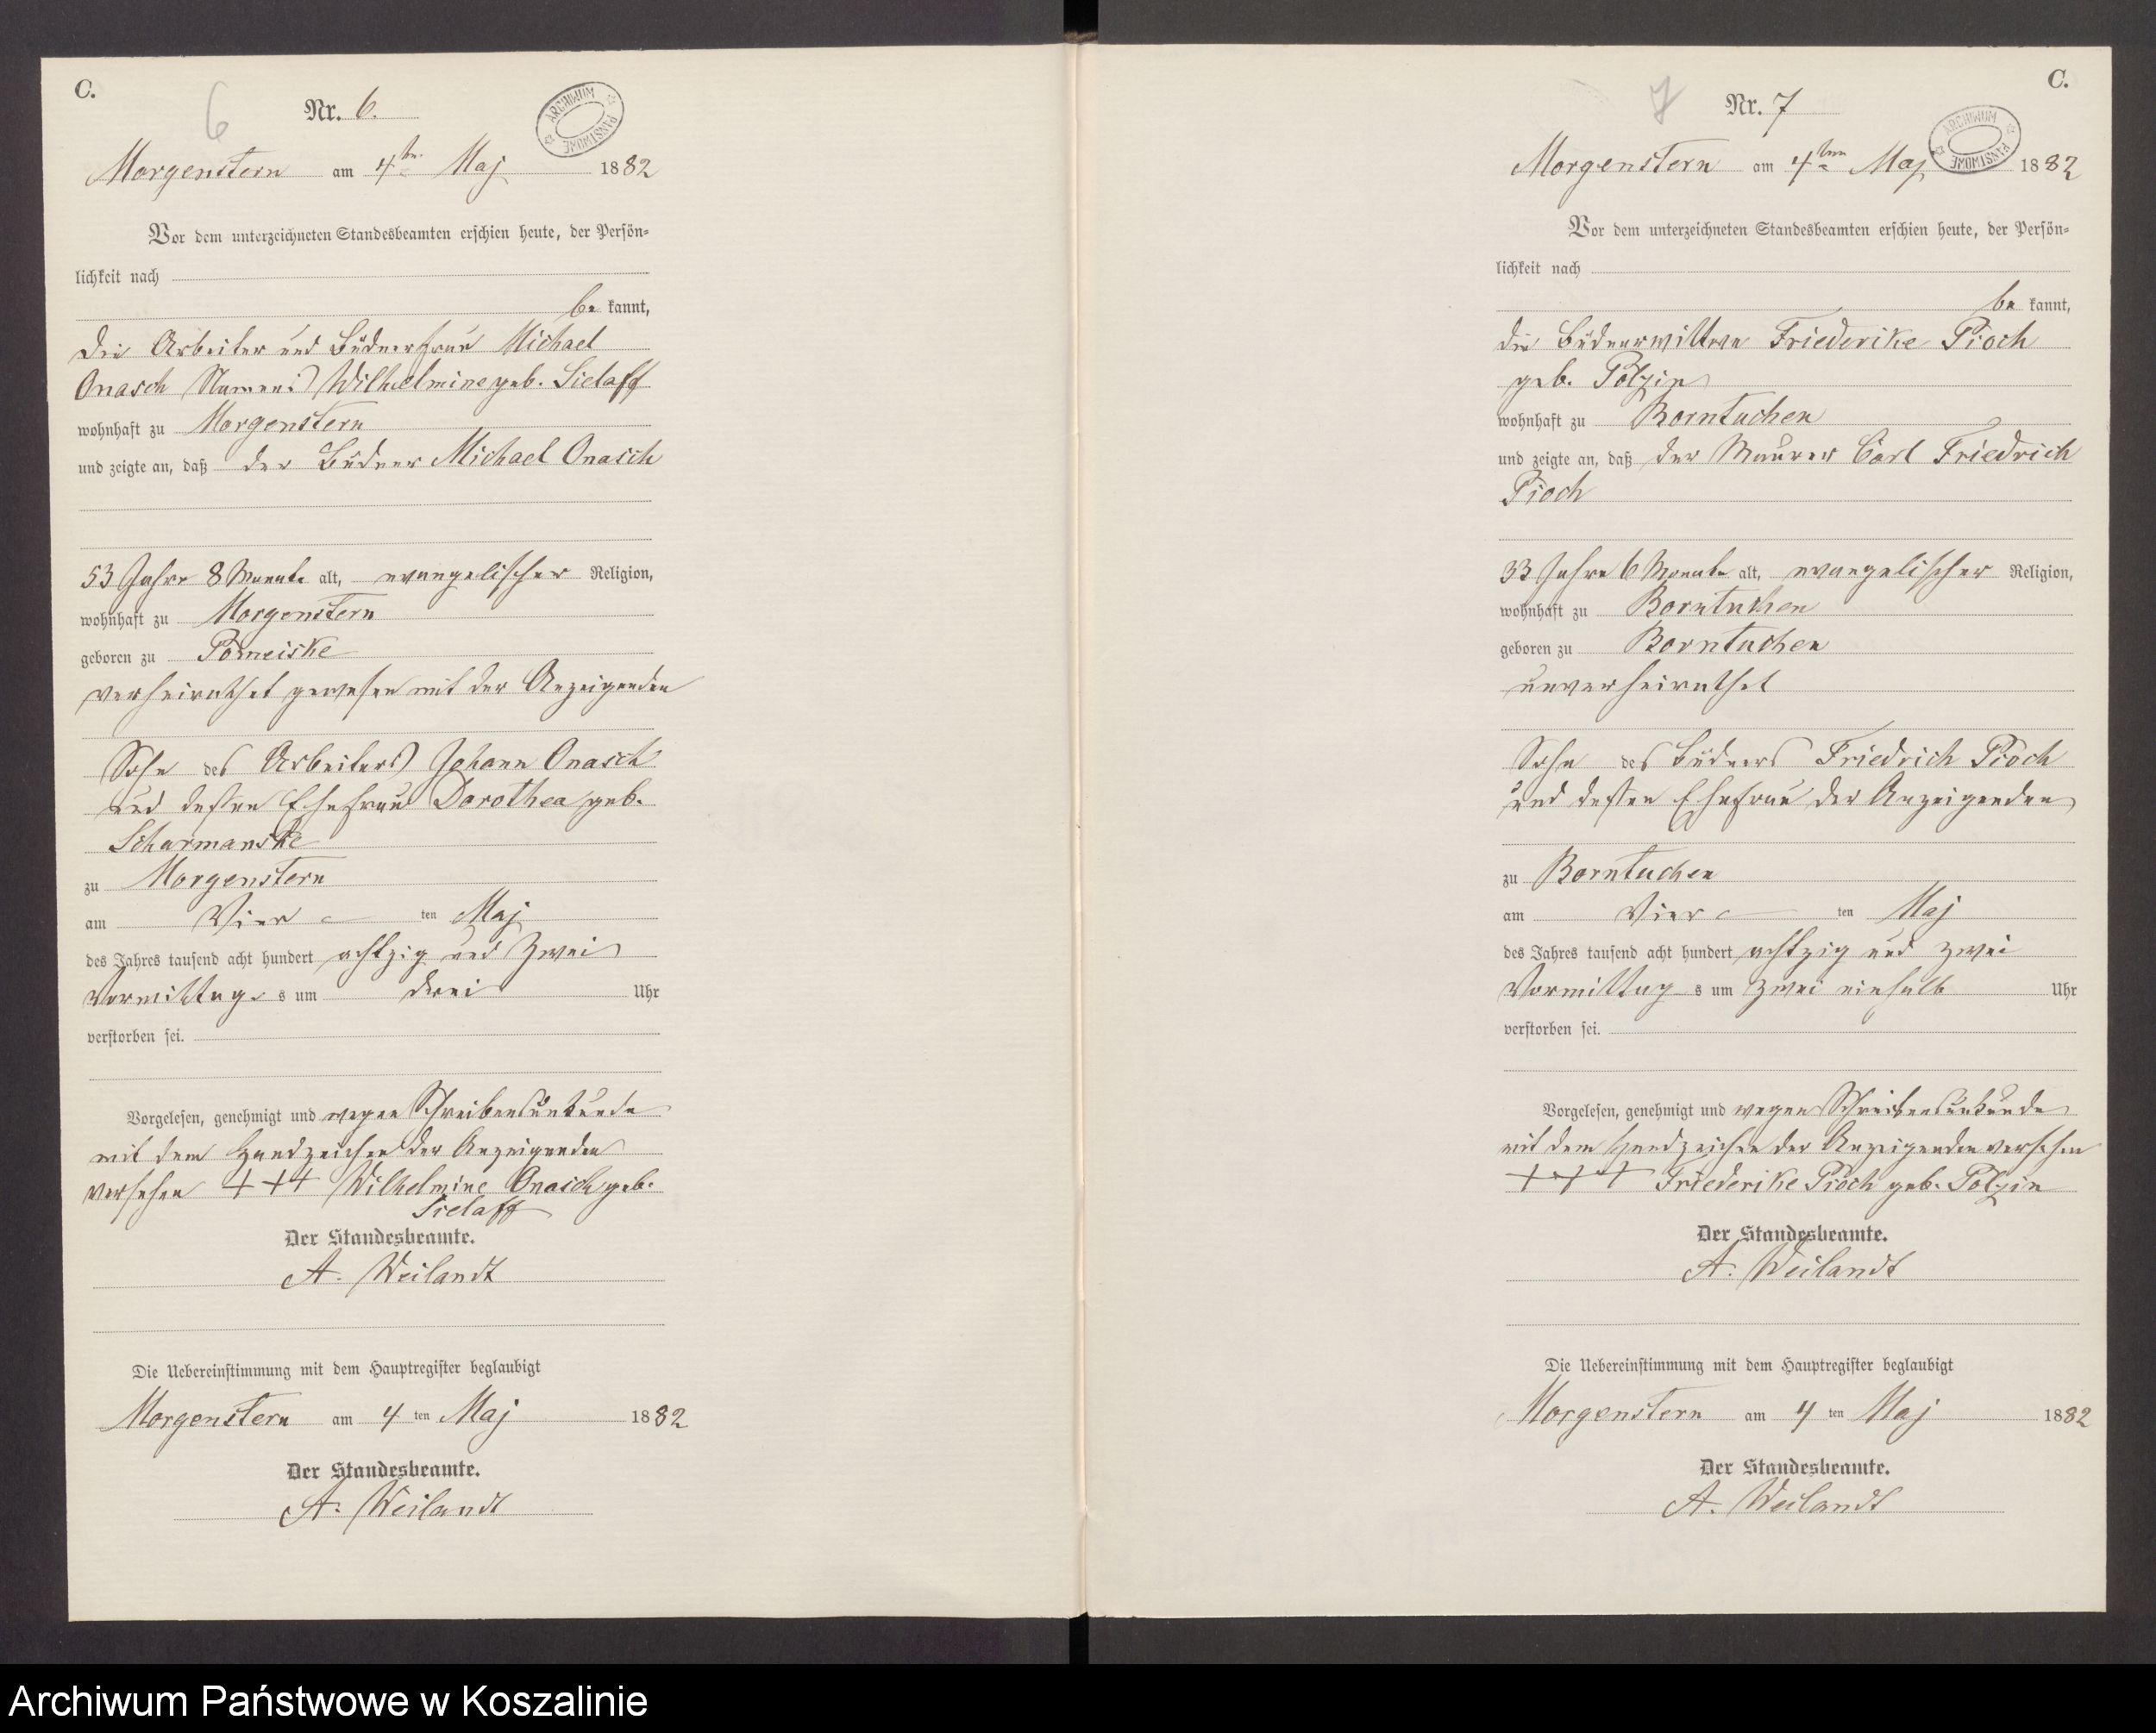 C.
6
Nr. 6.
ARCHIWUM PAŃSTWOWE
Morgenstern am 4ten Maj 1882
Vor dem unterzeichneten Standesbeamten erschien heute, der Persön-
lichkeit nach
be kannt,
die Arbeiter und Büdnerfrau Michael
Onasch Namens Wilhelmine geb. Sielaff
wohnhaft zu Morgenstern
und zeigte an, daß der Büdner Michael Onasch
53 Jahre 8 Monate alt, evangelischer Religion,
wohnhaft zu Morgenstern
geboren zu Pomeiske
verheirathet gewesen mit der Anzeigenden
Sohn des Arbeiters Johann Onasch
und dessen Ehefrau Dorothea geb.
Scharmanske
zu Morgenstern
am Vier ten Maj
des Jahres tausend acht hundert achtzig und zwei
Vormittag s um drei Uhr
verstorben sei.
Vorgelesen, genehmigt und wegen Schreibensunkunde
mit dem Handzeichen der Anzeigenden
versehen +++ Wilhelmine Onasch geb.
Sielaff
Der Standesbeamte.
A. Weilandt
Die Uebereinstimmung mit dem Hauptregister beglaubigt
Morgenstern am 4 ten Maj 1882
Der Standesbeamte.
A. Weilandt
C.
7
Nr. 7
ARCHIWUM PAŃSTWOWE
Morgenstern am 4ten Maj 1882
Vor dem unterzeichneten Standesbeamten erschien heute, der Persön-
lichkeit nach
be kannt,
die Büdnerwittwe Friederike Pioch
geb. Polzin
wohnhaft zu Borntuchen
und zeigte an, daß der Maurer Carl Friedrich
Pioch
33 Jahre 6 Monate alt, evangelischer Religion,
wohnhaft zu Borntuchen
geboren zu Borntuchen
unverheirathet
Sohn des Büdners Friedrich Pioch
und dessen Ehefrau der Anzeigenden
zu Borntuchen
am Vier ten Maj
des Jahres tausend acht hundert achtzig und zwei
Vormittag s um zwei einhalb Uhr
verstorben sei.
Vorgelesen, genehmigt und wegen Schreibensunkunde
mit dem Handzeichen der Anzeigenden versehen
+++ Friederike Pioch geb. Polzin
Der Standesbeamte.
A. Weilandt
Die Uebereinstimmung mit dem Hauptregister beglaubigt
Morgenstern am 4 ten Maj 1882
Der Standesbeamte.
A. Weilandt
Archiwum Państwowe w Koszalinie